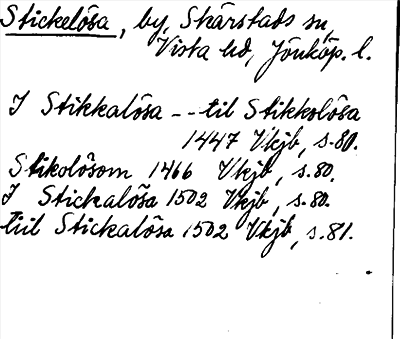 Stickelösa, by, Skärstads sn,
Vista hd, Jönköp. l.
I Stikkalösa -- til Stikkolösa
1447 Vkjb, s.80.
Stikolösom 1466 Vkjb, s.80.
I Stickalösa 1502 Vkjb, s.80.
tiil Stickalösa 1502 Vkjb, s.81.